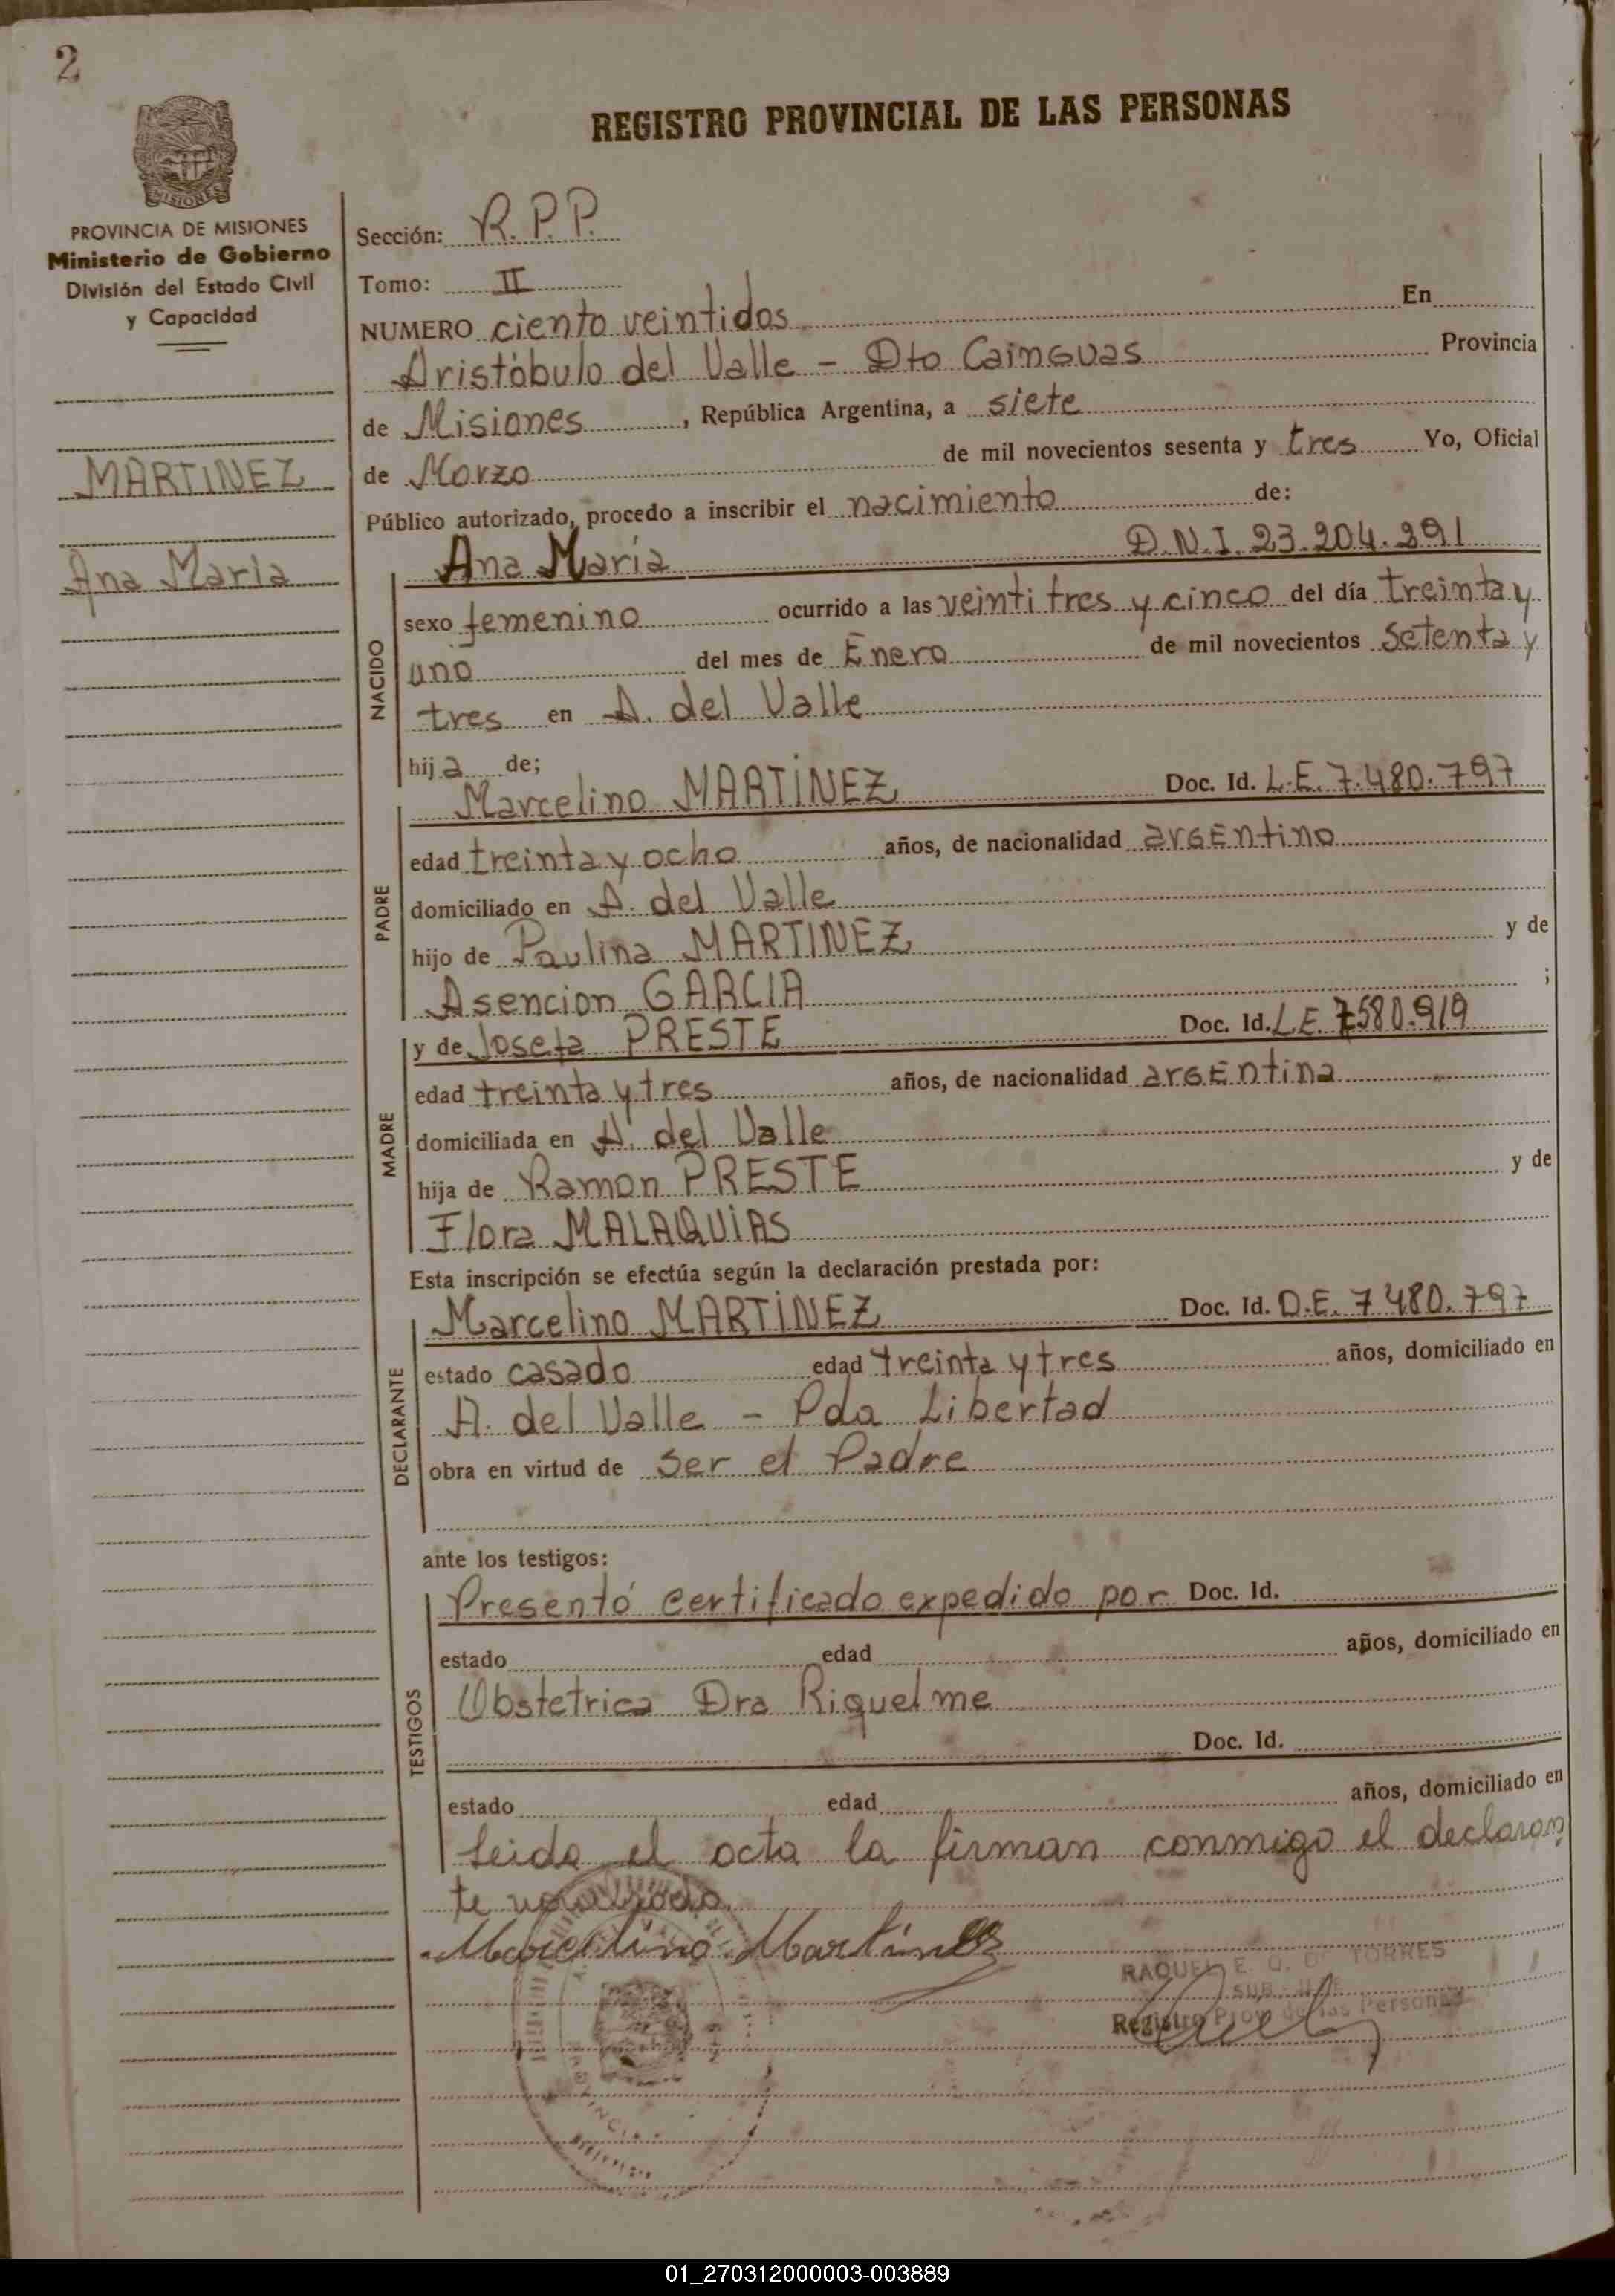 2
REGISTRO PROVINCIAL DE LAS PERSONAS
MISIONES
PROVINCIA DE MISIONES
Ministerio de Gobierno
División del Estado Civil
y Capacidad
MARTINEZ
Ana María
Sección: R.P.P.
Tomo: II
NUMERO ciento veintidos En
Aristóbulo del Valle - Dto Cainguas Provincia
de Misiones, República Argentina, a siete
de Marzo de mil novecientos sesenta y tres Yo, Oficial
Público autorizado, procedo a inscribir el nacimiento de:
Ana María D.N.I. 23.204.291
NACIDO
sexo femenino ocurrido a las veinti tres y cinco del día treinta y
uno del mes de Enero de mil novecientos setenta y
tres en A. del Valle
hija de;
PADRE
Marcelino MARTINEZ Doc. Id. L.E. 7.480.797
edad treinta y ocho años, de nacionalidad argentino
domiciliado en A. del Valle
hijo de Paulina MARTINEZ y de
Asencion GARCIA ;
MADRE
y de Josefa PRESTE Doc. Id. L.E. 7580.919
edad treinta y tres años, de nacionalidad argentina
domiciliada en A. del Valle
hija de Ramon PRESTE y de
Flora MALAQUIAS
Esta inscripción se efectúa según la declaración prestada por:
DECLARANTE
Marcelino MARTINEZ Doc. Id. D.E. 7 480.797
estado casado edad treinta y tres años, domiciliado en
A. del Valle - Pda Libertad
obra en virtud de ser el Padre
ante los testigos:
TESTIGOS
Presentó certificado expedido por Doc. Id.
estado edad años, domiciliado en
Obstetrica Dra Riquelme
Doc. Id.
estado edad años, domiciliado en
Leida el acta la firman conmigo el declaran
te
Marcelino Martínez
RAQUEL E. Q. DE TORRES
SUB-
Registro Prov de las Personas
PROVINCIA
01_270312000003-003889